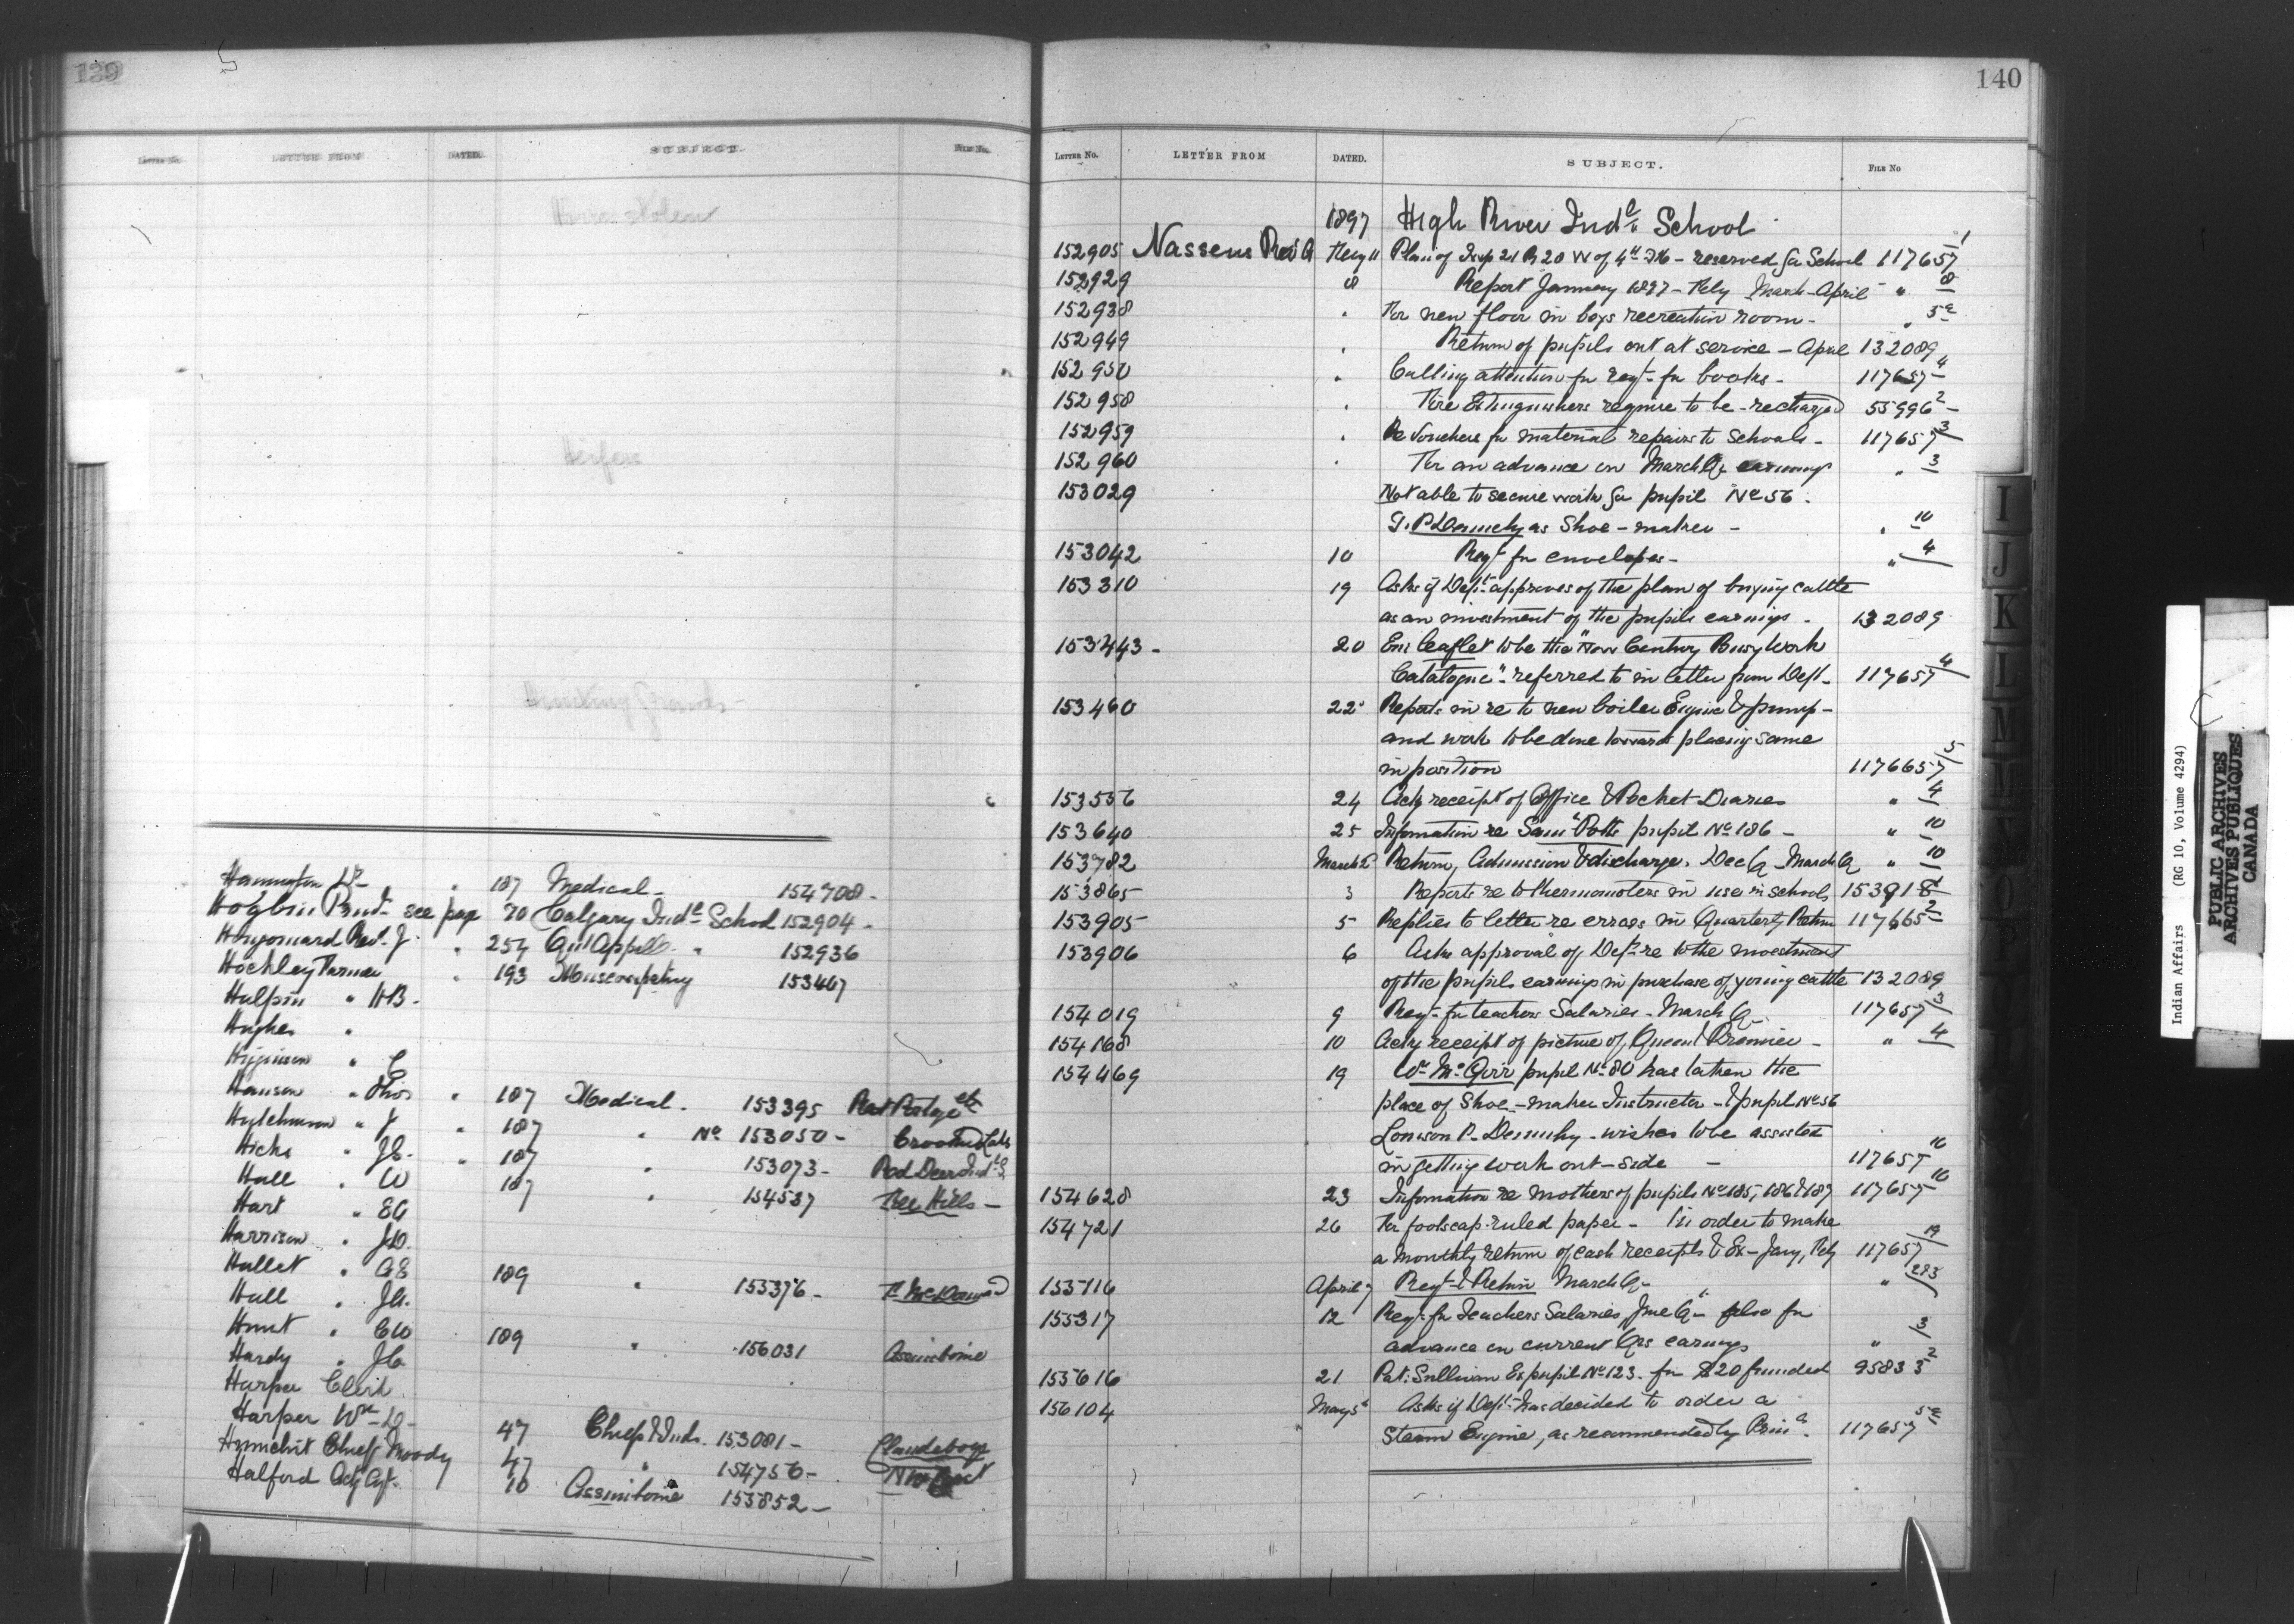 139
LETTER FROM DATED. SUBJECT. FILE No.
Horses stolen
Heifers
Hunting Grounds
Hannington Dr " 187 Medical - 154708 -
Hogbin Prin. see page 70 Calgary Indl School 152904 -
Hugonnard Rev. J. " 254 Qu'Appelle " 152936
Hockley Farmer " 193 Muscowpetung 153467
Halpin " HB -
Hughes "
Higginson " C
Hansen " Thos " 187 Medical - 153395 Rat Portage etc
Hutchinson " J " 187 " No 153050 - Crooked Lake
Hicks " JC - " 187 " 153073 - Red Deer Indl S.
Hall " W 187 " 154537 File Hills -
Hart " EA
Harrison " JD.
Hallet " AE
Hill " JA. 189 " 155376 -
Hunt " CW
Hardy " JC 189 " 156031 Assiniboine
Harper Clerk
Harper Wm D -
Chief Moody 47 Chiefs & Inds. 153081 - Clandeboye
47 " 154756 -
Halford Actg Agt. 10 Assiniboine 155852 -
140
LETTER No. LETTER FROM DATED. SUBJECT. FILE No
1897 High River Indl School
152905 Nassens Rev A Feby 11 Plan of Twp 21 R 20 W of 4th M - reserved for School 117657 1
152929 8 Report January 1897 - Feby March - April " 8
152938 " For new floor in boys recreation room - " 5a
152949 " Return of pupils out at service - April 132089
152950 " Calling attention for reqt for books - 117657 4
152958 " Fire Extinguishers require to be recharged 55996 2 -
152959 " Re Vouchers for material repairs to schools - 117657 3
152960 " For an advance on March Qr earnings " 3
153029 Not able to secure work for pupil No 56 -
as Shoe - maker - " 10
153042 10 Reqt for envelopes - " 4
153310 19 Asks if Dept approves of the plan of buying cattle
as an investment of the pupils earnings - 132089
153443 - 20 Enc leaflet to be the "New Century Busy Work
Catalogue" - referred to in letter from Dept - 117657 4
153460 22 Reports in re to new boiler Engine & pump -
and work to be done towards placing same
in position 1176657 5
153556 24 Ackg receipt of Office & Pocket Diaries " 4
153640 25 Information re Saml Potts pupil No 186 - " 10
153782 March 2 Return, Admission & discharge. Dec Q - March Q " 10
153865 3 Reports re to thermometers in use in schools 153918
153905 5 Replies to letter re errors in Quarterly Return 117665 2
153906 6 Asks approval of Dept re to the investment
of the pupils earnings in purchase of young cattle 132089
154019 9 Reqt for teachers Salaries - March Q - 117657 3
154168 10 Ackg receipt of picture of Queen & Premier - " 4
154469 19 Wm McGirr pupil No 80 has taken the
place of Shoe - maker Instructor - & pupil No 56
wishes to be assisted
in getting work out - side - 117657 10
154628 23 Information re mothers of pupils No 185, 186 & 187 117657 10
154721 26 For foolscap ruled paper - in order to make
a monthly return of cash receipts & Ex - Jany, Feb 117657 19
155116 April 7 Reqt & Return March Q - " 283
155317 12 Reqt for Teachers Salaries June Q - also for
advance on current Qrs earnings " 3
155616 21 Pat. Sullivan Ex pupil No 123 - for $20 funded 95833 2
156104 May 5 Asks if Dept has decided to order a
Steam Engine, as recommended by Prinl. 117657 5a
I
J
K
L
M
Indian Affairs (RG 10, Volume 4294)
PUBLIC ARCHIVES
ARCHIVES PUBLIQUES
CANADA